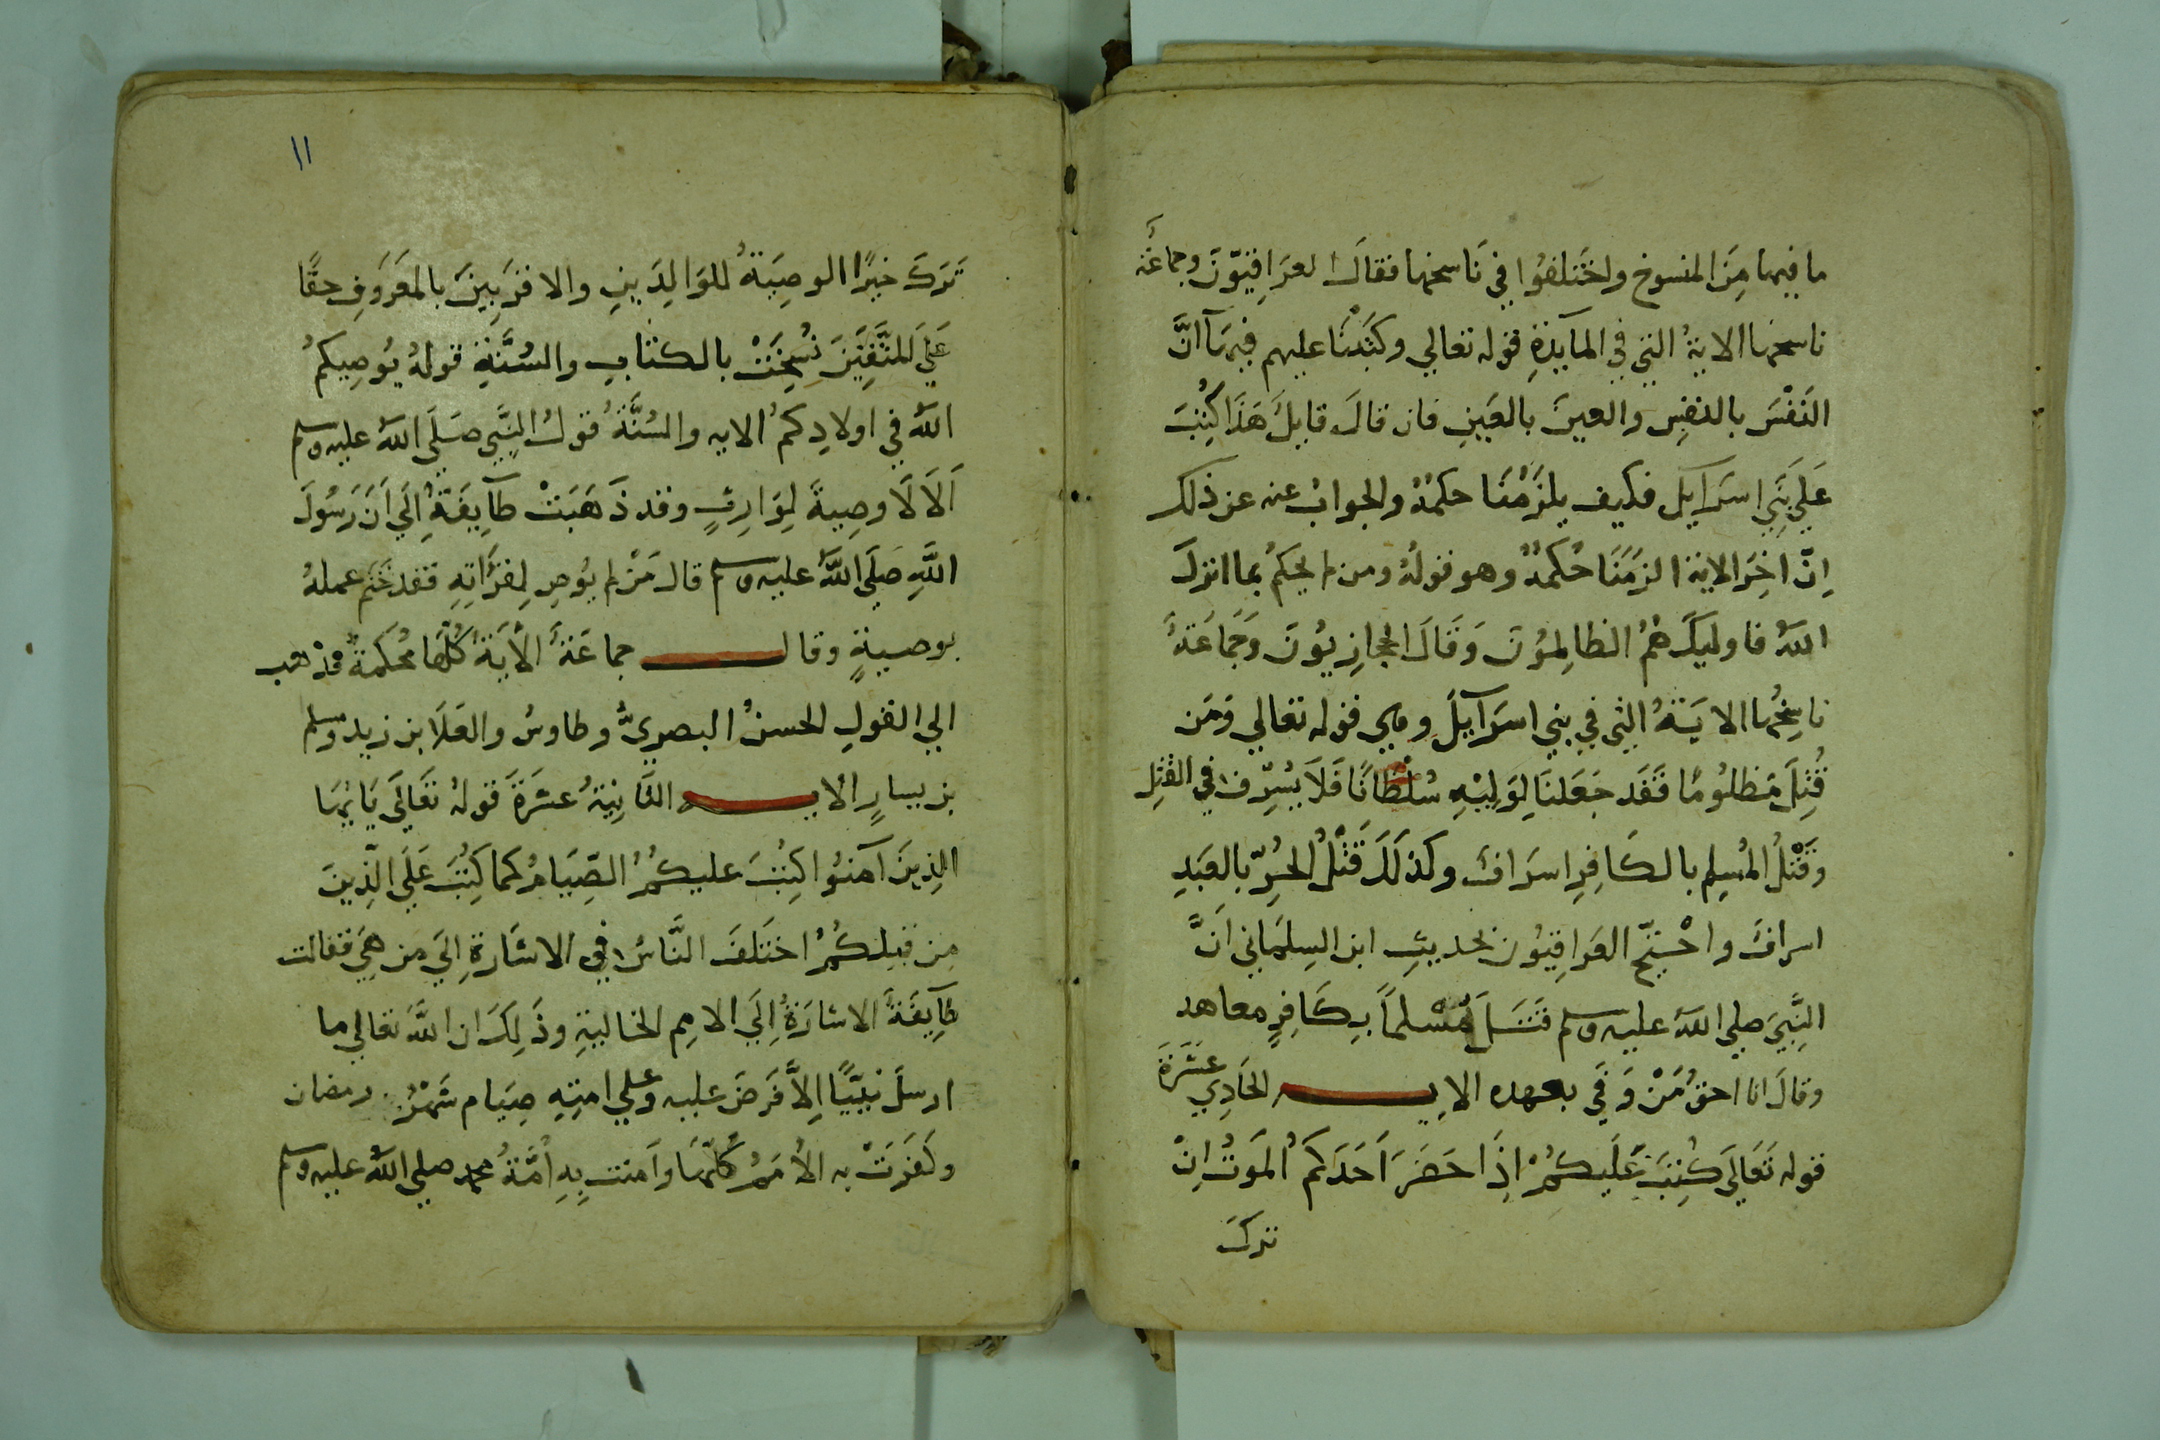 ما فيها مِنَ المنسوخ واختَلفوُا في نَاسخها فقالَ العرَاقيّوُنَ وجماعَة
ناسخها الاية التي في المآيدَةِ قوله تعالي وكتَبْنَا عليهم فيهَآ انَّ
النَفْسَ بالنفسِ والعينَ بالعَينِ فان قالَ قايلَ هَذَا كُتِبَ
عَلَي بَنَي اسرَايل فكيف يلزَمُنَا حكمُهُ والجوابُ عنه عن ذلك
اِنّ اخِرَ الاية الزمَنَا حُكمُهُ وهو قولُهُ ومن لم يحكمُ بما انزلَ
اللهُ فاوليكَ هُمُ الظالِموُنَ وَقَالَ الحجازِيوُنَ وَجَمَاعَةُ
ناسِخُها الايَةُ التي في بني اسرَآيلَ وهي قوله تعالي وَمَن
قُتِلَ مَظلوُمًا فَقَد جَعَلنَا لِوَلِيِهِ سُلْطَانًا فَلَا يُسْرِف في القَتِل
وَقَتْلُ المُسِلِم بالكَافِرِ اسرَافَ وكذلَكَ قَتْلُ الحُرِّ بالعَبَدِ
اسرافَ واحْتجّ العرَاقيوُن بحديثِ ابن السِلمَاني اَنَّ
النِّبَيَ صلي اللهَ عليه وسلم قَتَلَ مُسْلماً بِكَافِرٍ معاهد
وقالَ انا احقُ مَنْ وَفَي بعهده الاية الحَادِي عَشَرَةَ
قوله تَعَالَي كُتِبَ عَلَيكُمْ اِذَا حَضَرَ اَحَدَكمُ المَوتُ اِنْ
تركَ
١١
تَرَكَ خيرًا الوصِيَةُ للوَالِدَينِ والاقرَبِينَ بالمَعَروُفِ حقًا
عَلَي المتَّقِيَنَ نُسِخَتْ بالكتابِ والسُنَّةِ قولهُ يوُصِيكمُ
اللهُ في اولادِكمُ الايه والسُنَّةُ قولُ النبَّي صَلَي اللهَ عليه وسلم
اَلَا لَا وصِيةَ لِوَارِثٍ وقد ذَهَبَتْ طَآيِفَةُ اِلَي اَنَ رَسُولَ
اللهِ صَلَي اللهُ عليه وسلم قال مَنْ لم يوُصِ لِقرَاَتِهِ فقد خَتم عملهُ
بوصيةٍ وقال جماعَةَ الاَيَةُ كُلُّهَا محُكمةُ فذهب
الي القولِ الحسنُ البصريُّ وطاوسُ والعَلَا بن زيد ومسلم
بن يسارٍ الاية الثَانِيةُ عشرَةَ قَولهُ تَعَالَي يَايهَا
الذِينَ آمَنوُا كِتُبَ عليكُمُ الصِّيَامُ كما كُتِبَ عَلَي الّذِينَ
مِن قبلِكُمُ اختَلفَ النَّاسُ في الاشَارَةِ اِلَي مَن هِيَ فقالت
طَآيفَةَ الاشارَةُ اِلَي الامِمِ الخاليةِ وذَلِكَ ان اللهَ تعالي ما
ارسلَ نبيَّاً اِلاَّ فَرضَ عليه وعلي امتِهِ صِيَام شَهْرُ رمضان
وكَفَرَتْ به الاُمَمُ كُلّهَا وآمنت بِهِ اُمَّةُ محمد صلي اللهُ عليه وسلم